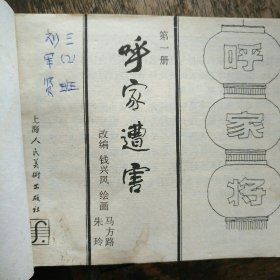 呼
家
将
第一册
呼家遭害
改编 钱兴凤 绘画 马方路
朱玲
上海人民美术出版社
三(2)班